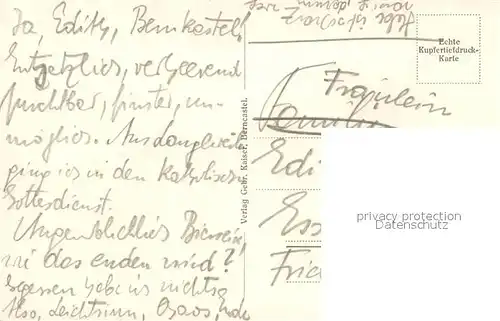 Ja, Edith, Bernkastel.
Entsetzlich, verheerend
furchtbar, finster, un-
möglich. Aus Langweile
ging ich in den katholischen
Gottesdienst.
Augenblicklich Bierreise,
wie das enden wird?
Gegessen habe ich nichts
Also, Leichtsinn, Chaos, Ende
Verlag Gebr. Kaiser, Berncastel.
Echte
Kupfertiefdruck-
Karte
Fräulein
Familie
Edi
Ess
Frie
privacy protection
Datenschutz